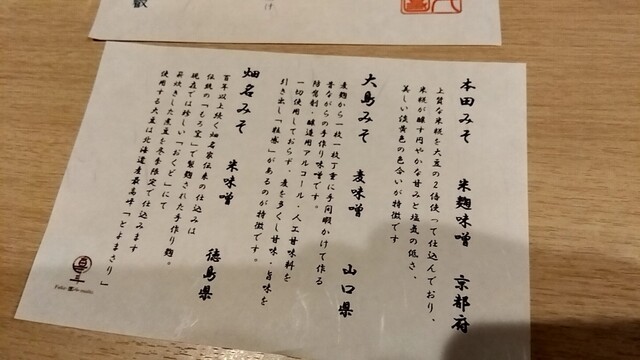 本田みそ 米麹味噌 京都府
上質な米糀を大豆の2倍使って仕込んでおり、
米糀が醸す円やかな甘みと塩気の低さ、
美しい淡黄色の色合いが特徴です
大島みそ 麦味噌 山口県
麦麹から一枚一枚丁重に手間暇かけて作る
昔ながらの手作り味噌です。
防腐剤・醸造用アルコール・人工甘味料を
一切使用しておらず、麦を多くし甘味・旨味を
引き出し「粒感」があるのが特徴です。
畑名みそ 米味噌 徳島県
百年以上続く畑名家伝来の仕込みは
伝統の「もろ室」で製麹された手作り麹。
現在では珍しい「おくど」にて
薪炊きした煮豆を冬季限定で仕込みます
使用する大豆は北海道産最高峰「とよまさり」